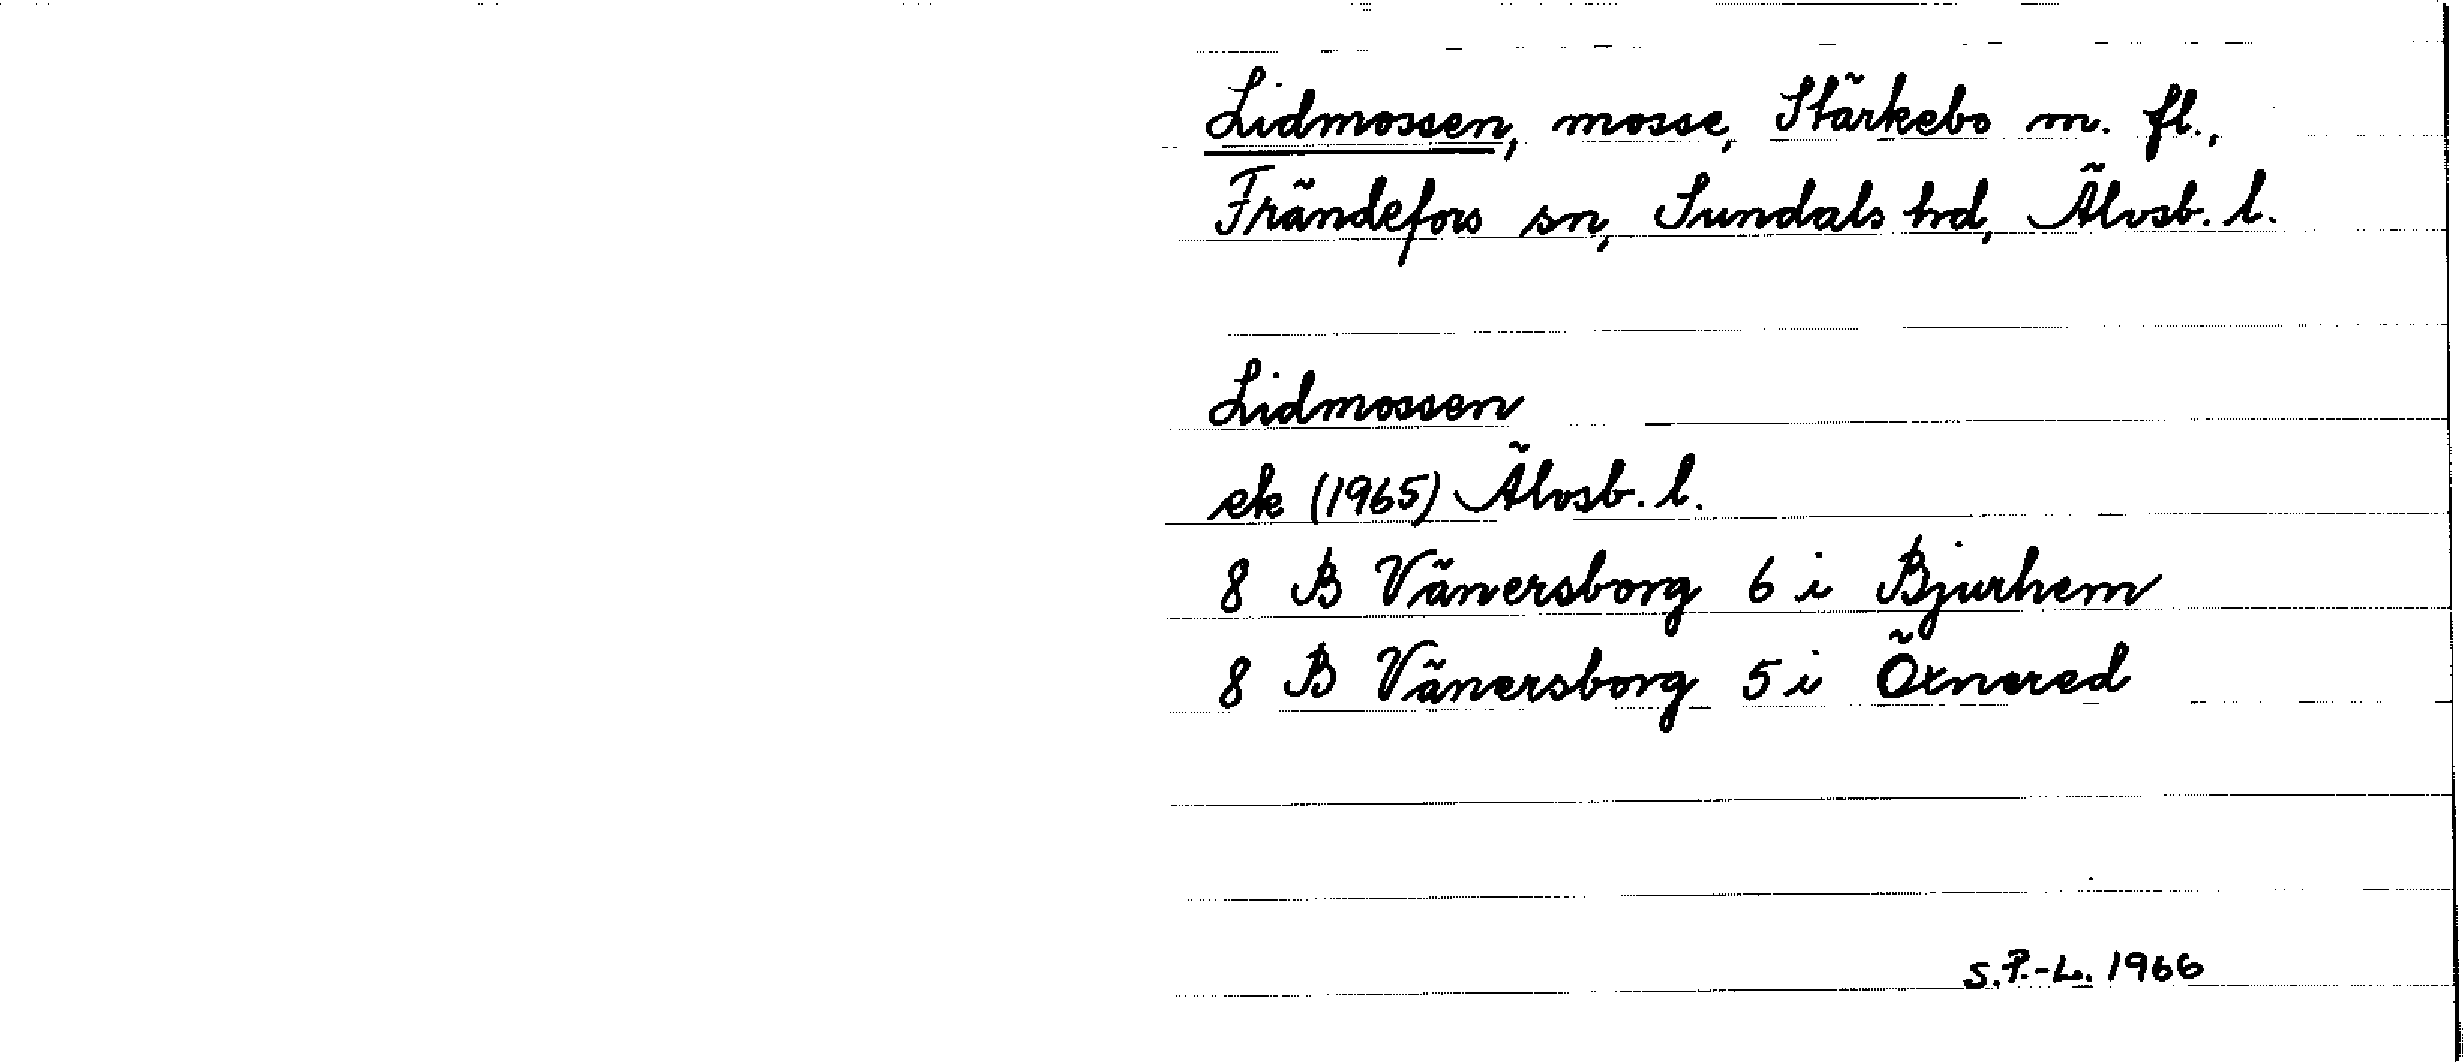 Lidmossen, mosse, Stärkebo m. fl.,
Frändefors sn, Sundals hd, Älvsb. l.
Lidmossen
ek (1965) Älvsb. l.
8 B Vänersborg 6 i Bjurhem
8 B Vänersborg 5 i Öxnered
S.P.-L. 1966